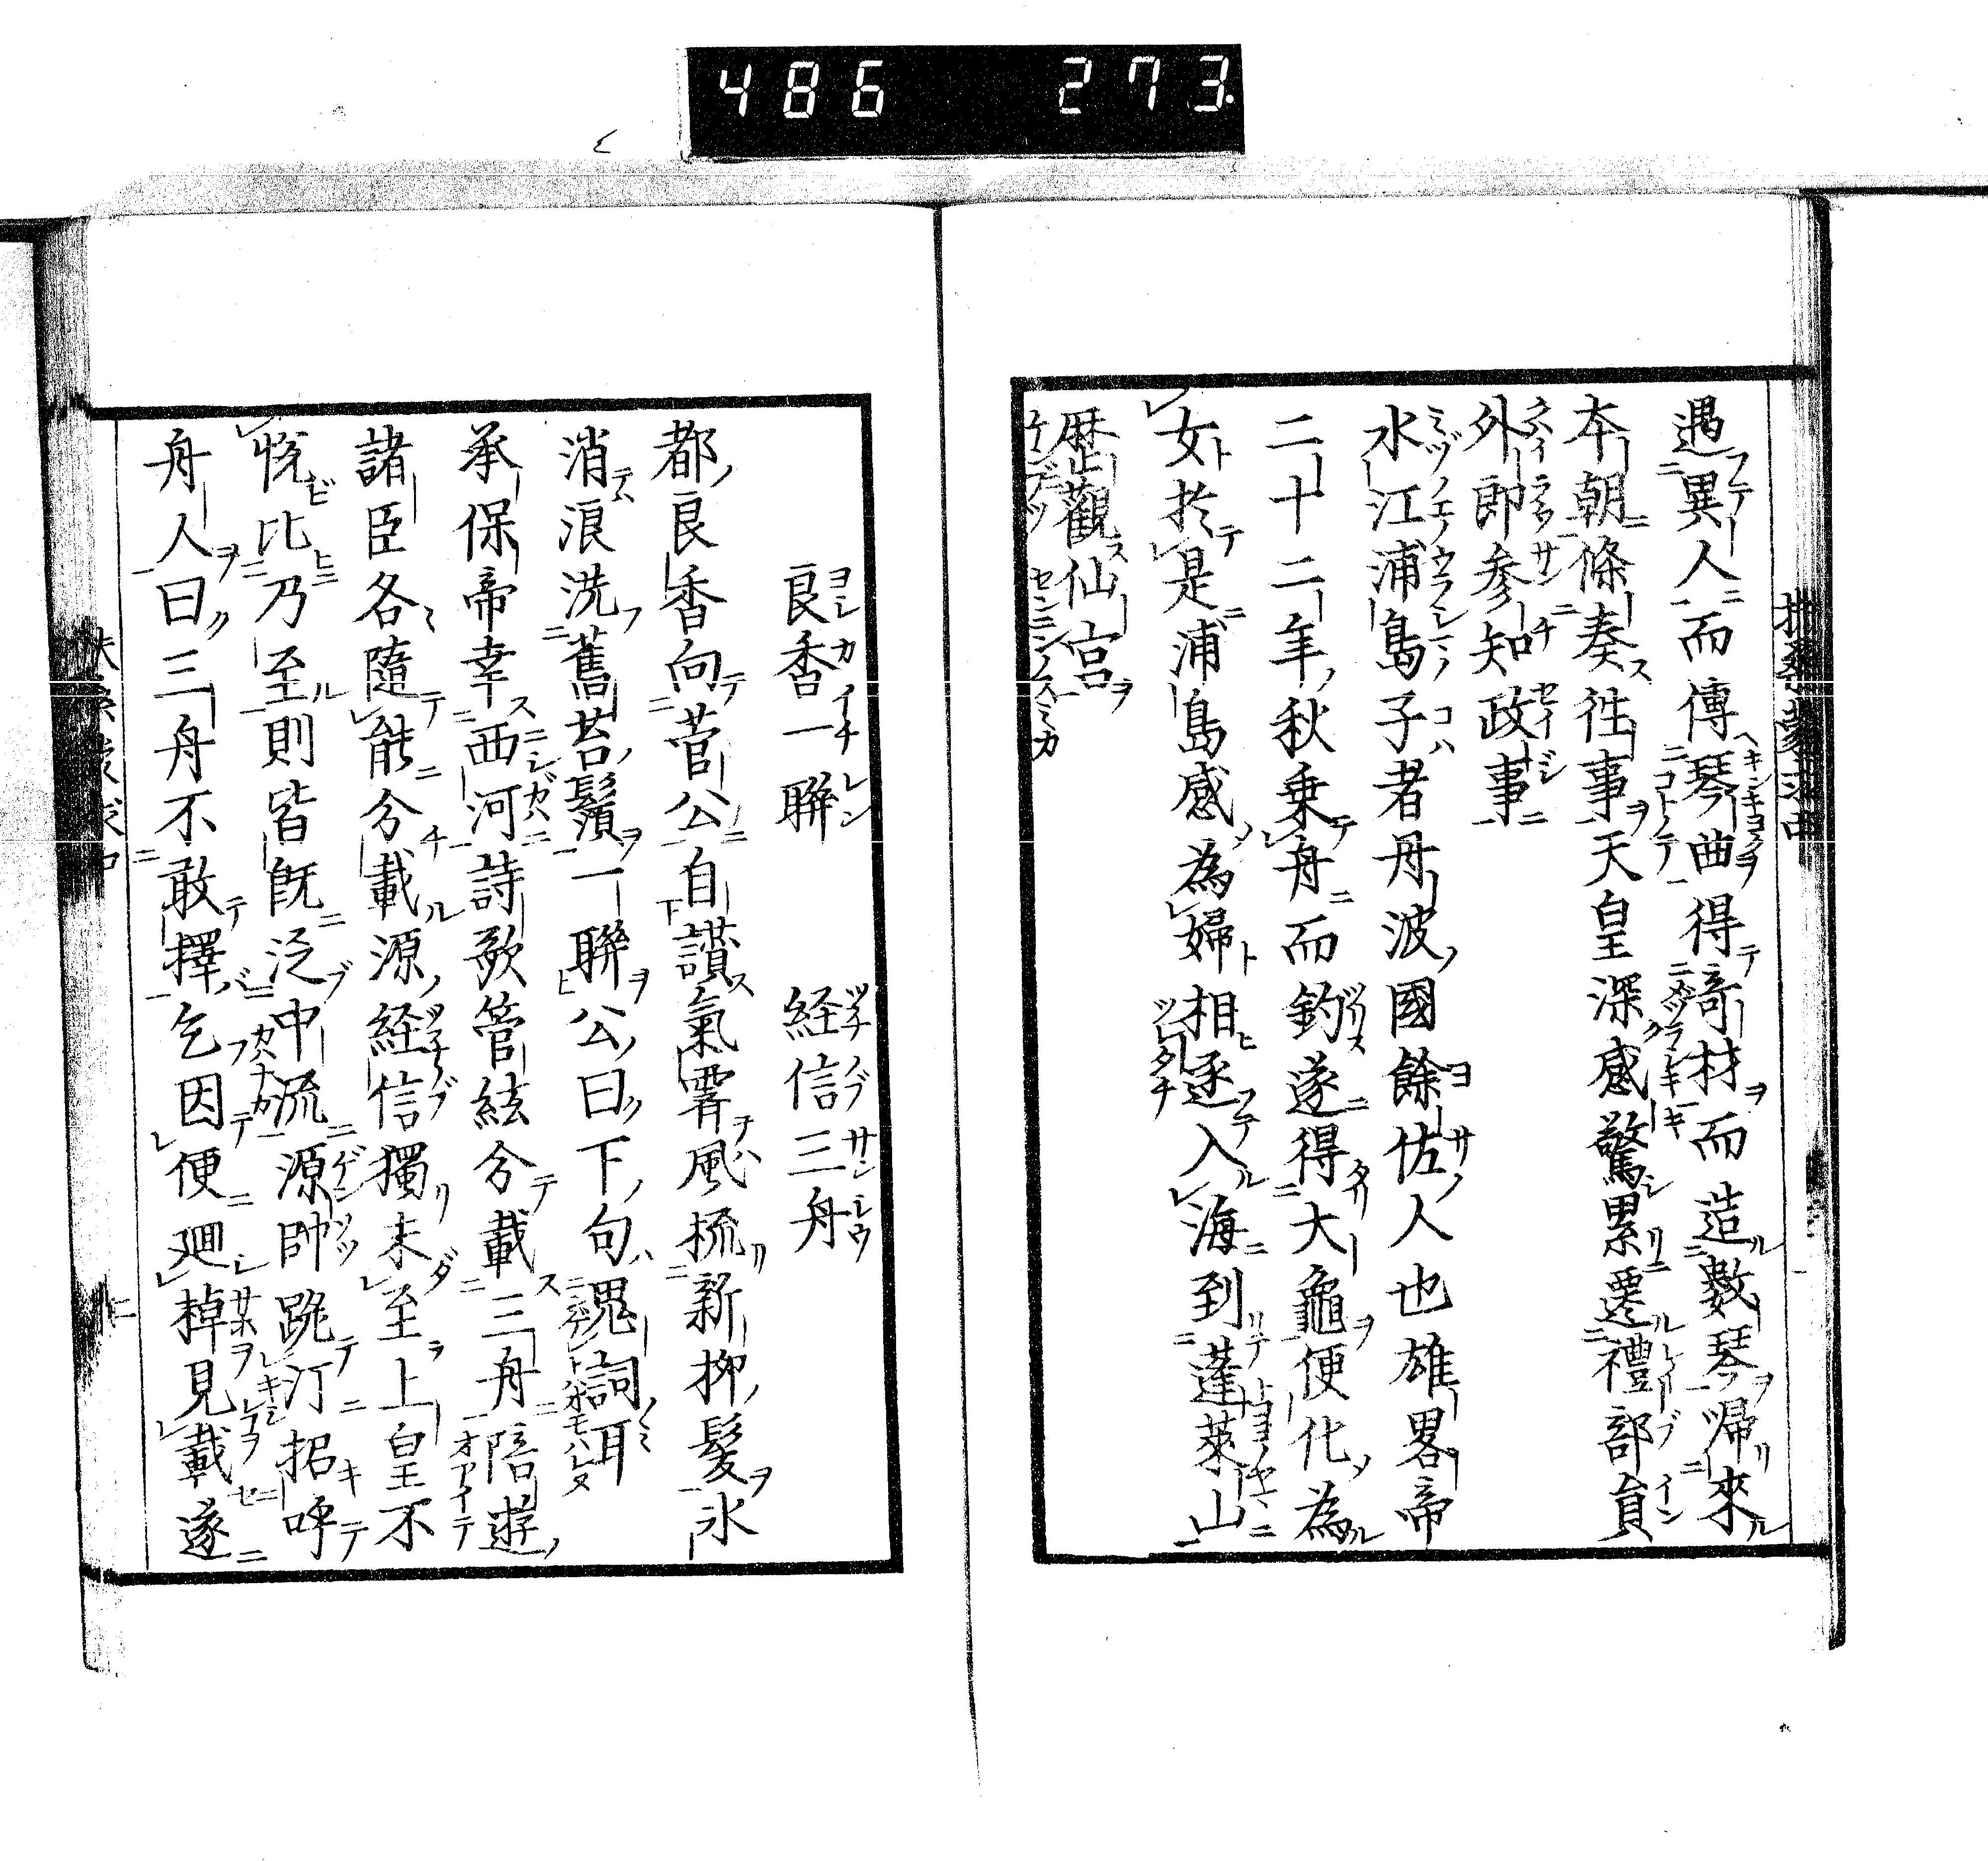 486 273
遇異人而傳琴曲得奇材而造數琴帰來
本朝條奏徃事天皇深感驚累遷禮部員
外郎参知政事
水江浦島子者丹波國餘佐人也雄畧帝
二十二年秋乗舟而釣遂得大龜便化為
女於是浦島感為婦相逐入海到蓬萊山
歴觀仙宮
良香一聯　経信三舟
都良香向菅公自讃氣霽風梳新柳髪氷
消浪洗舊苔鬚一聯公曰下句鬼詞耳
承保帝幸西河詩歌管絃分載三舟陪遊
諸臣各隨能分載源経信獨未至上皇不
悦比乃至則皆既泛中流源帥跪汀招呼
舟人曰三舟不敢擇乞因便廻棹見載遂